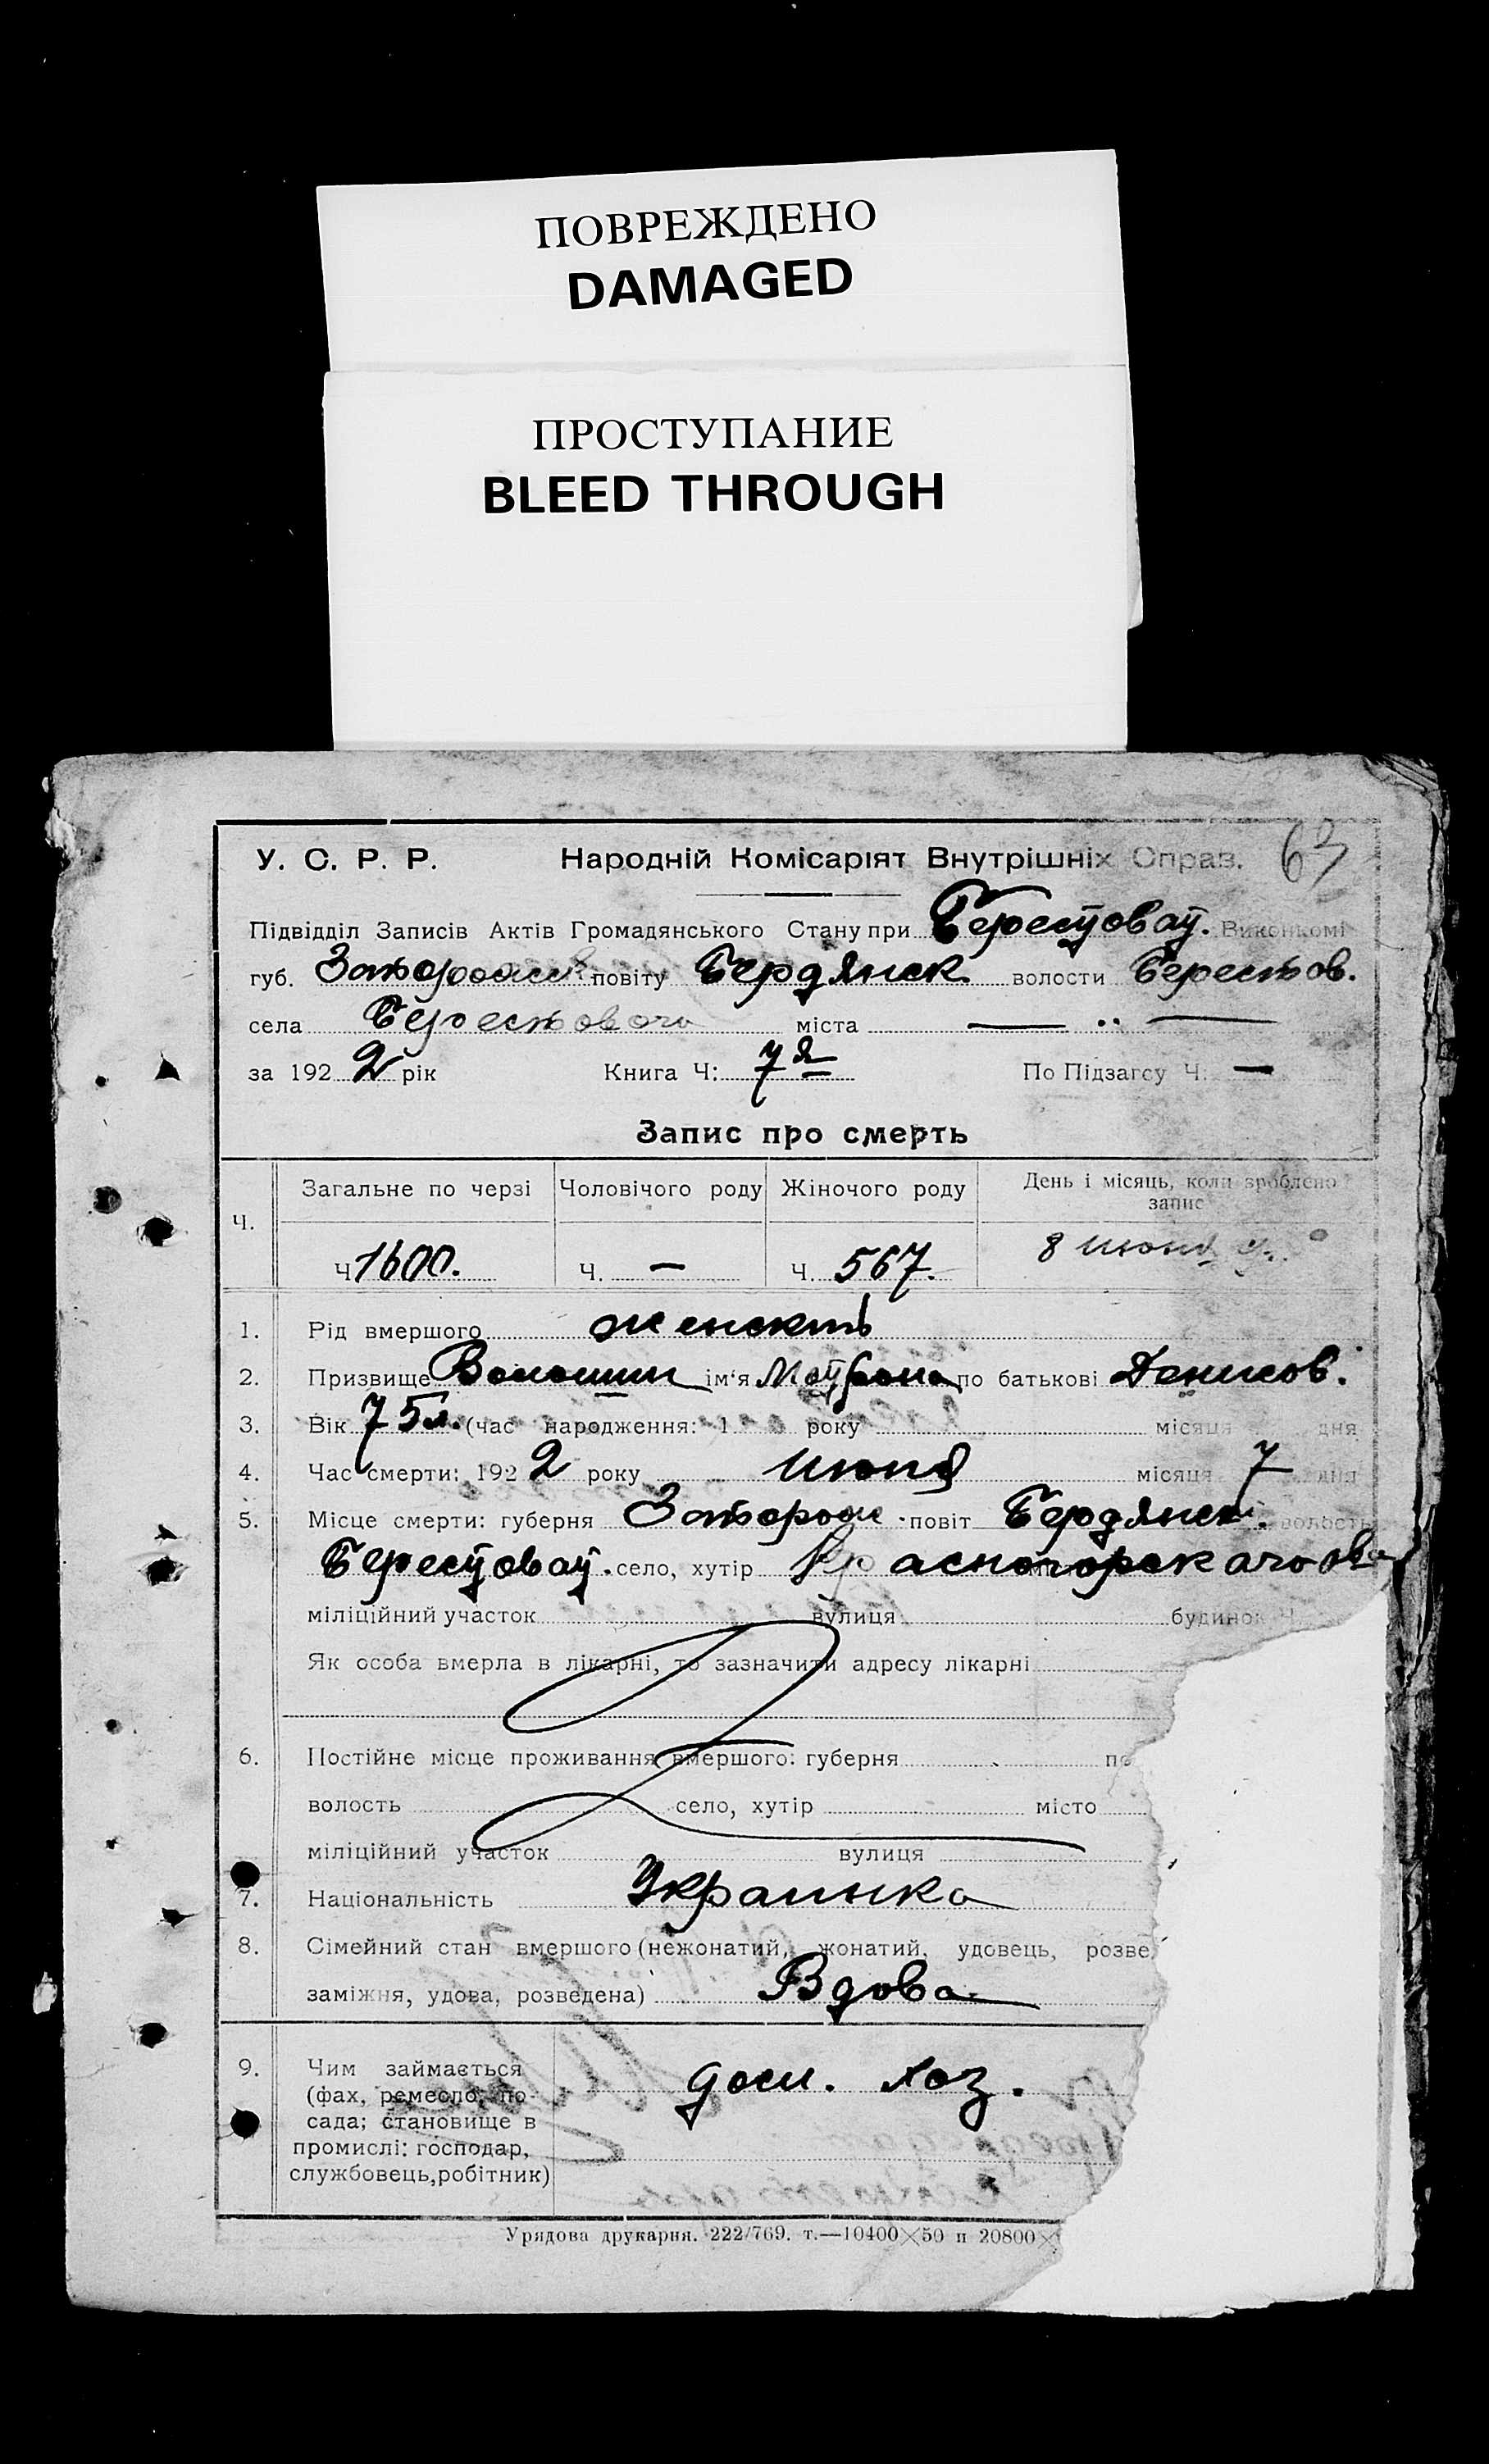 ПОВРЕЖДЕНО
DAMAGED
ПРОСТУПАНИЕ
BLEED THROUGH
63
У. С. Р. Р. Народній Комісаріят Внутрішніх Справ.
Підвідділ Записів Актів Громадянського Стану при Берестоват. Виконкомі
губ. Запорож. повіту Бердянск. волости Берестов.
села Берестового міста — „ —
за 1922 рік Книга Ч: 7я По Підзагсу Ч. —
Запис про смерть
Ч. Загальне по черзі Чоловічого роду Жіночого роду День і місяць, коли зроблено запис
Ч 1600. Ч. — Ч. 567. 8 июня
1. Рід вмершого женскій
2. Призвище Волошин ім'я Матрона по батькові Денисов.
3. Вік 75 л. (час народження: 1 року місяця дня
4. Час смерти: 1922 року июня місяця 7 дня
5. Місце смерти: губерня Запорож. повіт Бердянск. волость
Берестоват. село, хутір Красногорского
міліційний участок вулиця будинок Ч.
Як особа вмерла в лікарні, то зазначити адресу лікарні
6. Постійне місце проживання вмершого: губерня по
волость село, хутір місто
міліційний участок вулиця
7. Національність Украинка
8. Сімейний стан вмершого (нежонатий, жонатий, удовець, розве
заміжня, удова, розведена) Вдова
9. Чим займається дом. хоз.
(фах, ремесло, по-
сада; становище в
промислі: господар,
службовець, робітник)
Урядова друкарня. 222/769. т.—10400×50 п 20800×